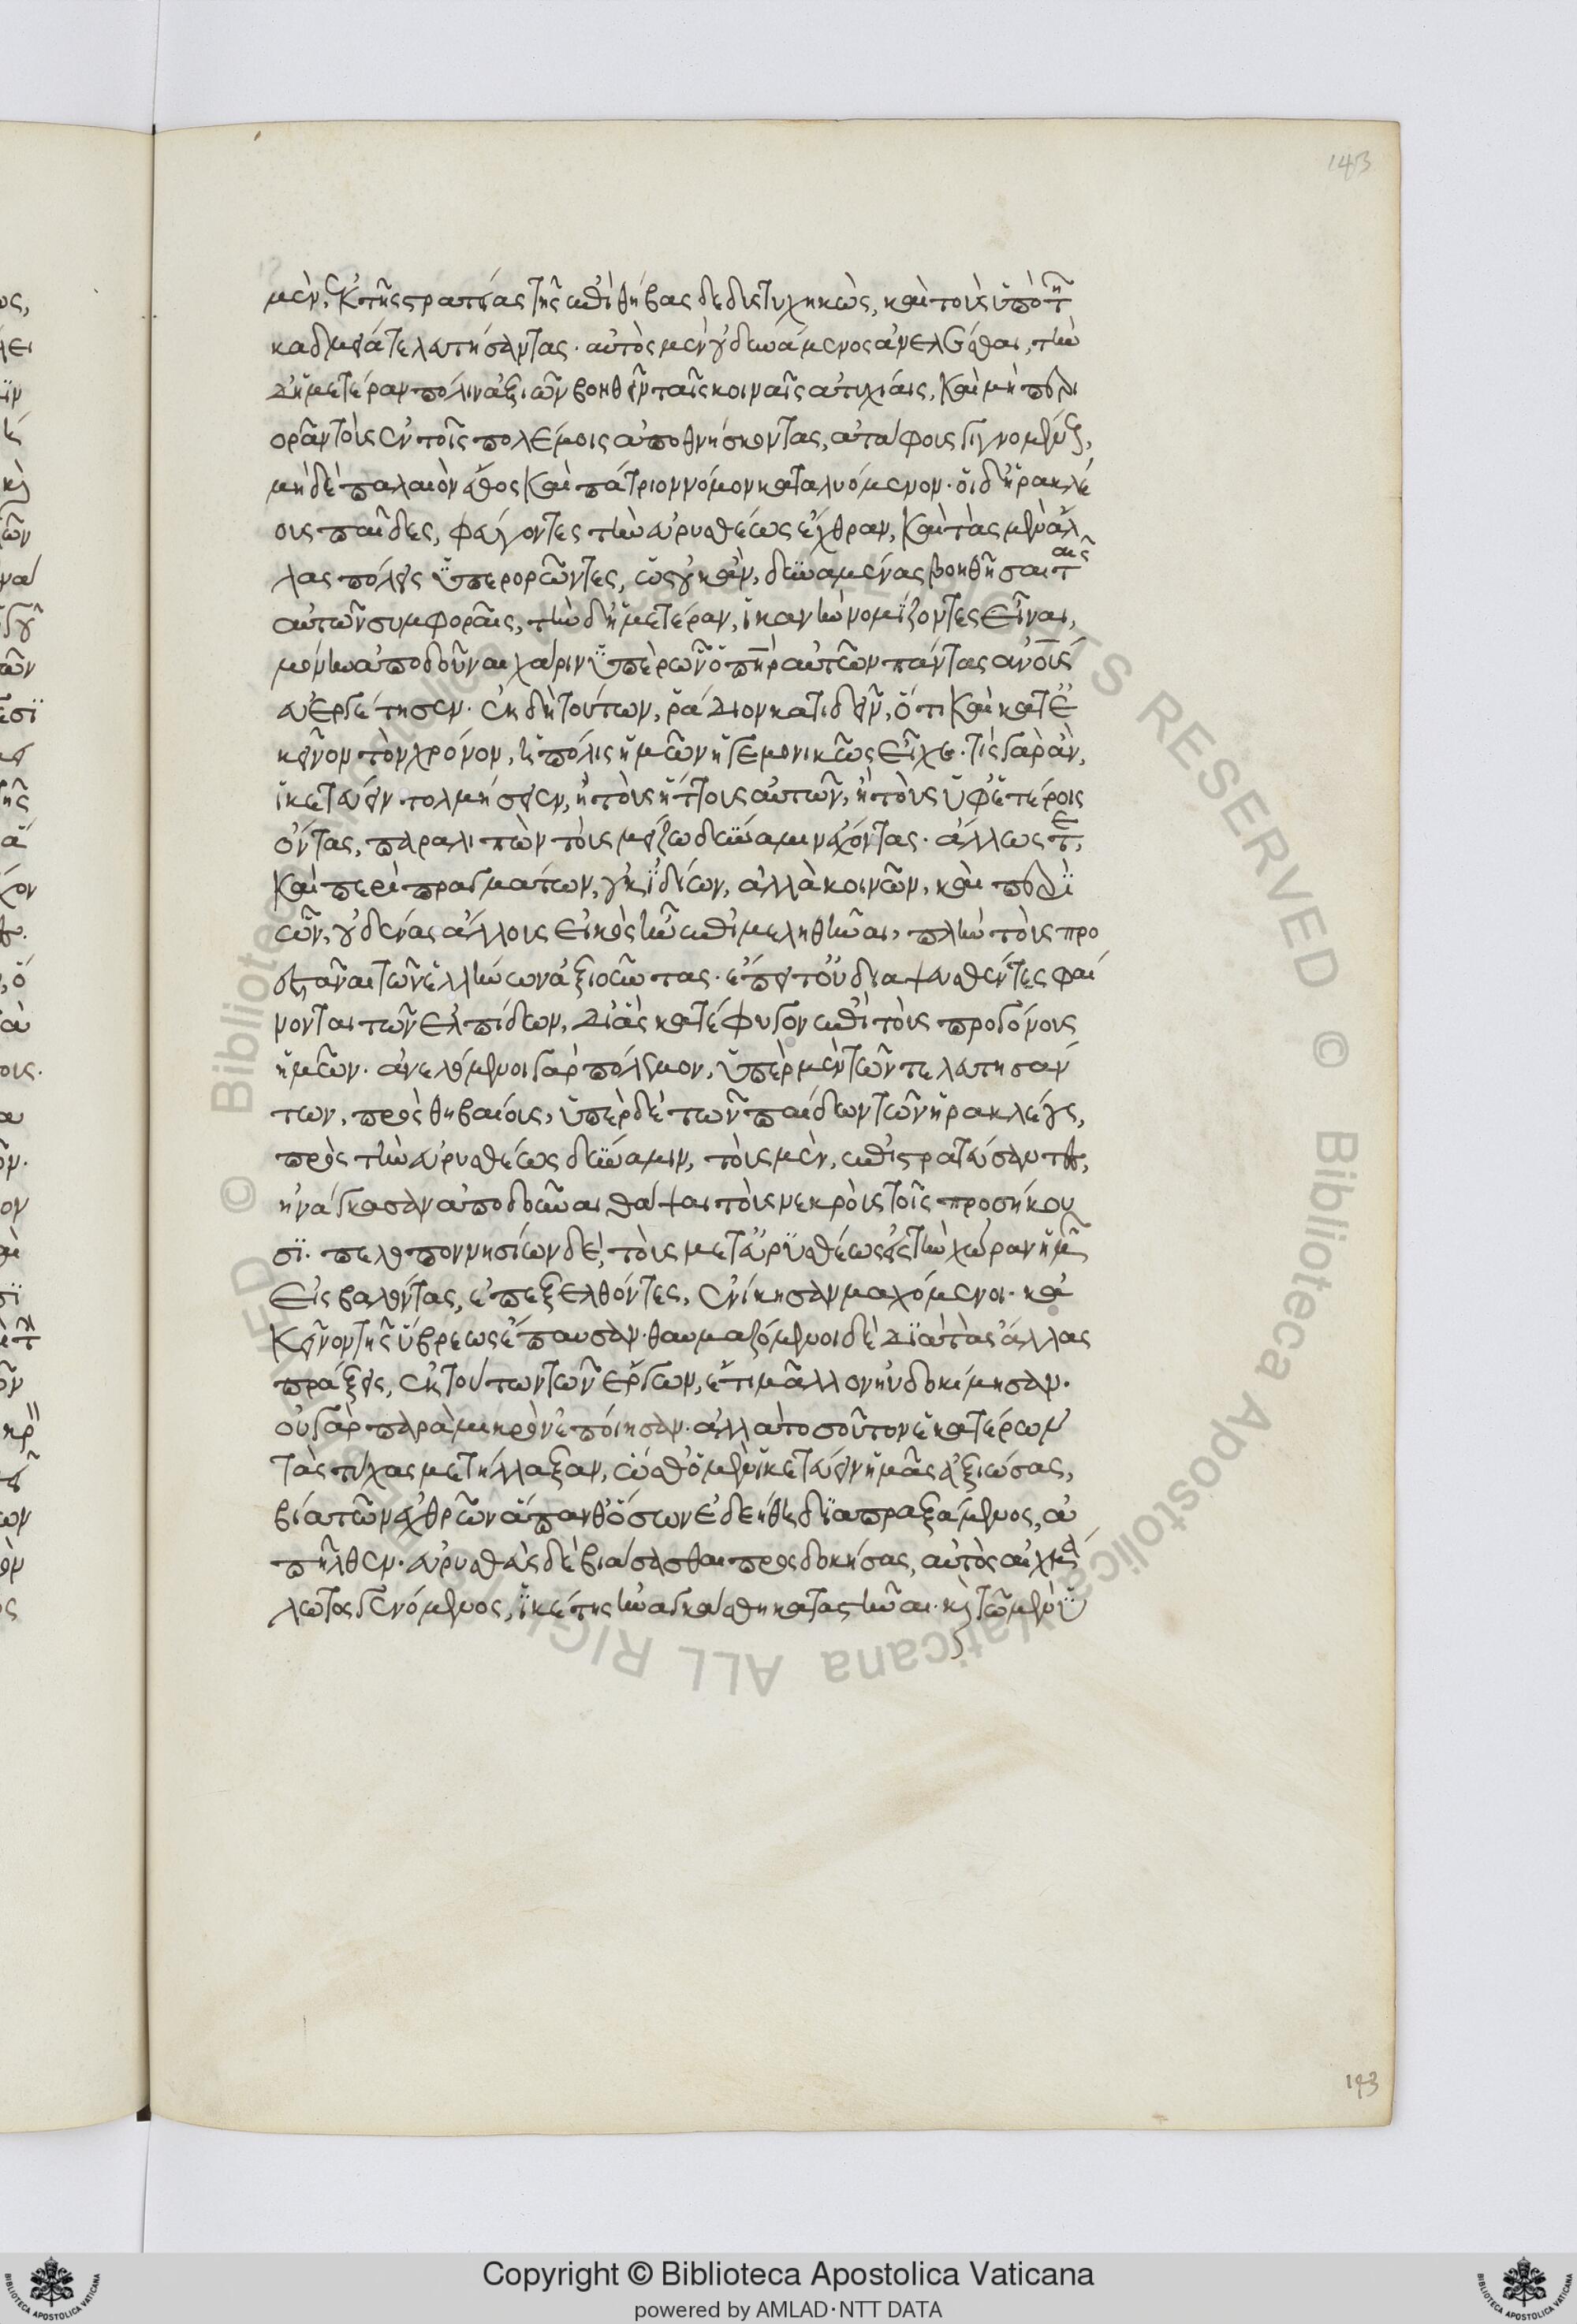 143
μὲν, ἐκ τῆς στρατείας τῆς ἐπὶ θήβας δεδυστυχηκὼς, καὶ τοὺς ὑπὸ τῇ
καδμεία τελευτήσαντας· αὐτὸς μὲν οὐ δυνάμενος ἀνελέσθαι, τὴν
δ' ἡμετέραν πόλιν ἀξιῶν βοηθεῖν ταῖς κοιναῖς ἀτυχίαις, καὶ μὴ περι
ορᾶν τοὺς ἐν τοῖς πολέμοις ἀποθνήσκοντας, ἀτάφους γιγνομένους,
μηδὲ παλαιὸν ἔθος καὶ πάτριον νόμον καταλυόμενον· οἱ δ' ἡρακλέ
ους παῖδες, φεύγοντες τὴν εὐρυσθέως ἔχθραν, καὶ τὰς μὲν ἄλ
λας πόλεις ὑπερορῶντες, ὡς οὐκ ἂν, δυναμένας βοηθῆσαι ταῖς
αὐτῶν συμφοραῖς, τὴν δ' ἡμετέραν, ἱκανὴν νομίζοντες εἶναι,
μόνην ἀποδοῦναι χάριν ὑπὲρ ὧν ὁ πηρ αὐτῶν πάντας ἀνοις
εὐεργέτησεν· ἐκ δὴ τούτων, ῥάδιον κατιδεῖν, ὅτι καὶ κατ' ἐ
κεῖνον τὸν χρόνον, ἡ πόλις ἡμῶν ἡγεμονικῶς εἶχε· τίς γὰρ ἂν,
ἱκετεύειν τολμήσειεν, ἢ τοὺς ἥττους αὐτῶν, ἢ τοὺς ὑφ' ἑτέροις
ὄντας, παραλιπὼν τοὺς μείζω δύναμιν ἔχοντας· ἄλλως τε,
καὶ περὶ πραγμάτων, οὐκ ἰδίων, ἀλλὰ κοινῶν, καὶ περὶ
ὧν, οὐδένας ἄλλους εἰκὸς ἦν ἐπιμεληθῆναι, πλὴν τοὺς προ
εστάναι τῶν ἑλλήνων ἀξιοῦντας· ἔπειτ' οὐδὲ ψευσθέντες φαί
νονται τῶν ἐλπίδων, δι' ἃς κατέφυγον ἐπὶ τοὺς προγόνους
ἡμῶν· ἀνελόμενοι γὰρ πόλεμον, ὑπὲρ μὲν τῶν τελευτησάν
των, πρὸς θηβαίους, ὑπὲρ δὲ τῶν παίδων τῶν ἡρακλέους,
πρὸς τὴν εὐρυσθέως δύναμιν, τοὺς μὲν, ἐπιστρατεύσαντες,
ἠνάγκασαν ἀποδοῦναι θάψαι τοὺς νεκροὺς τοῖς προσήκου
σι· πελοποννησίων δὲ, τοὺς μετ' εὐρυσθέως εἰς τὴν χώραν ἡμῶν
εἰσβαλόντας, ἐπεξελθόντες, ἐνίκησαν μαχόμενοι· κἀ
κεῖνον τῆς ὕβρεως ἔπαυσαν· θαυμαζόμενοι δὲ διὰ τὰς ἄλλας
πράξεις, ἐκ τούτων τῶν ἔργων, ἔτι μᾶλλον ηὐδοκίμησαν·
οὐ γὰρ παρὰ μικρὸν ἐποίησαν· ἀλλὰ τοσοῦτον ἑκατέρων
τὰς τύχας μετήλλαξαν, ὥσθ' ὁ μὲν ἱκετεύειν ἡμᾶς ἀξιώσας,
βίᾳ τῶν ἐχθρῶν ἅπανθ' ὅσων ἐδεήθη διαπραξάμενος, ἀ
πῆλθεν· εὐρυσθεὺς δὲ βιάσασθαι προσδοκήσας, αὐτὸς αἰχμά
λωτος γενόμενος, ἱκέτης ἠναγκάσθη καταστῆναι· καὶ τῷ μὲν ὑ
143